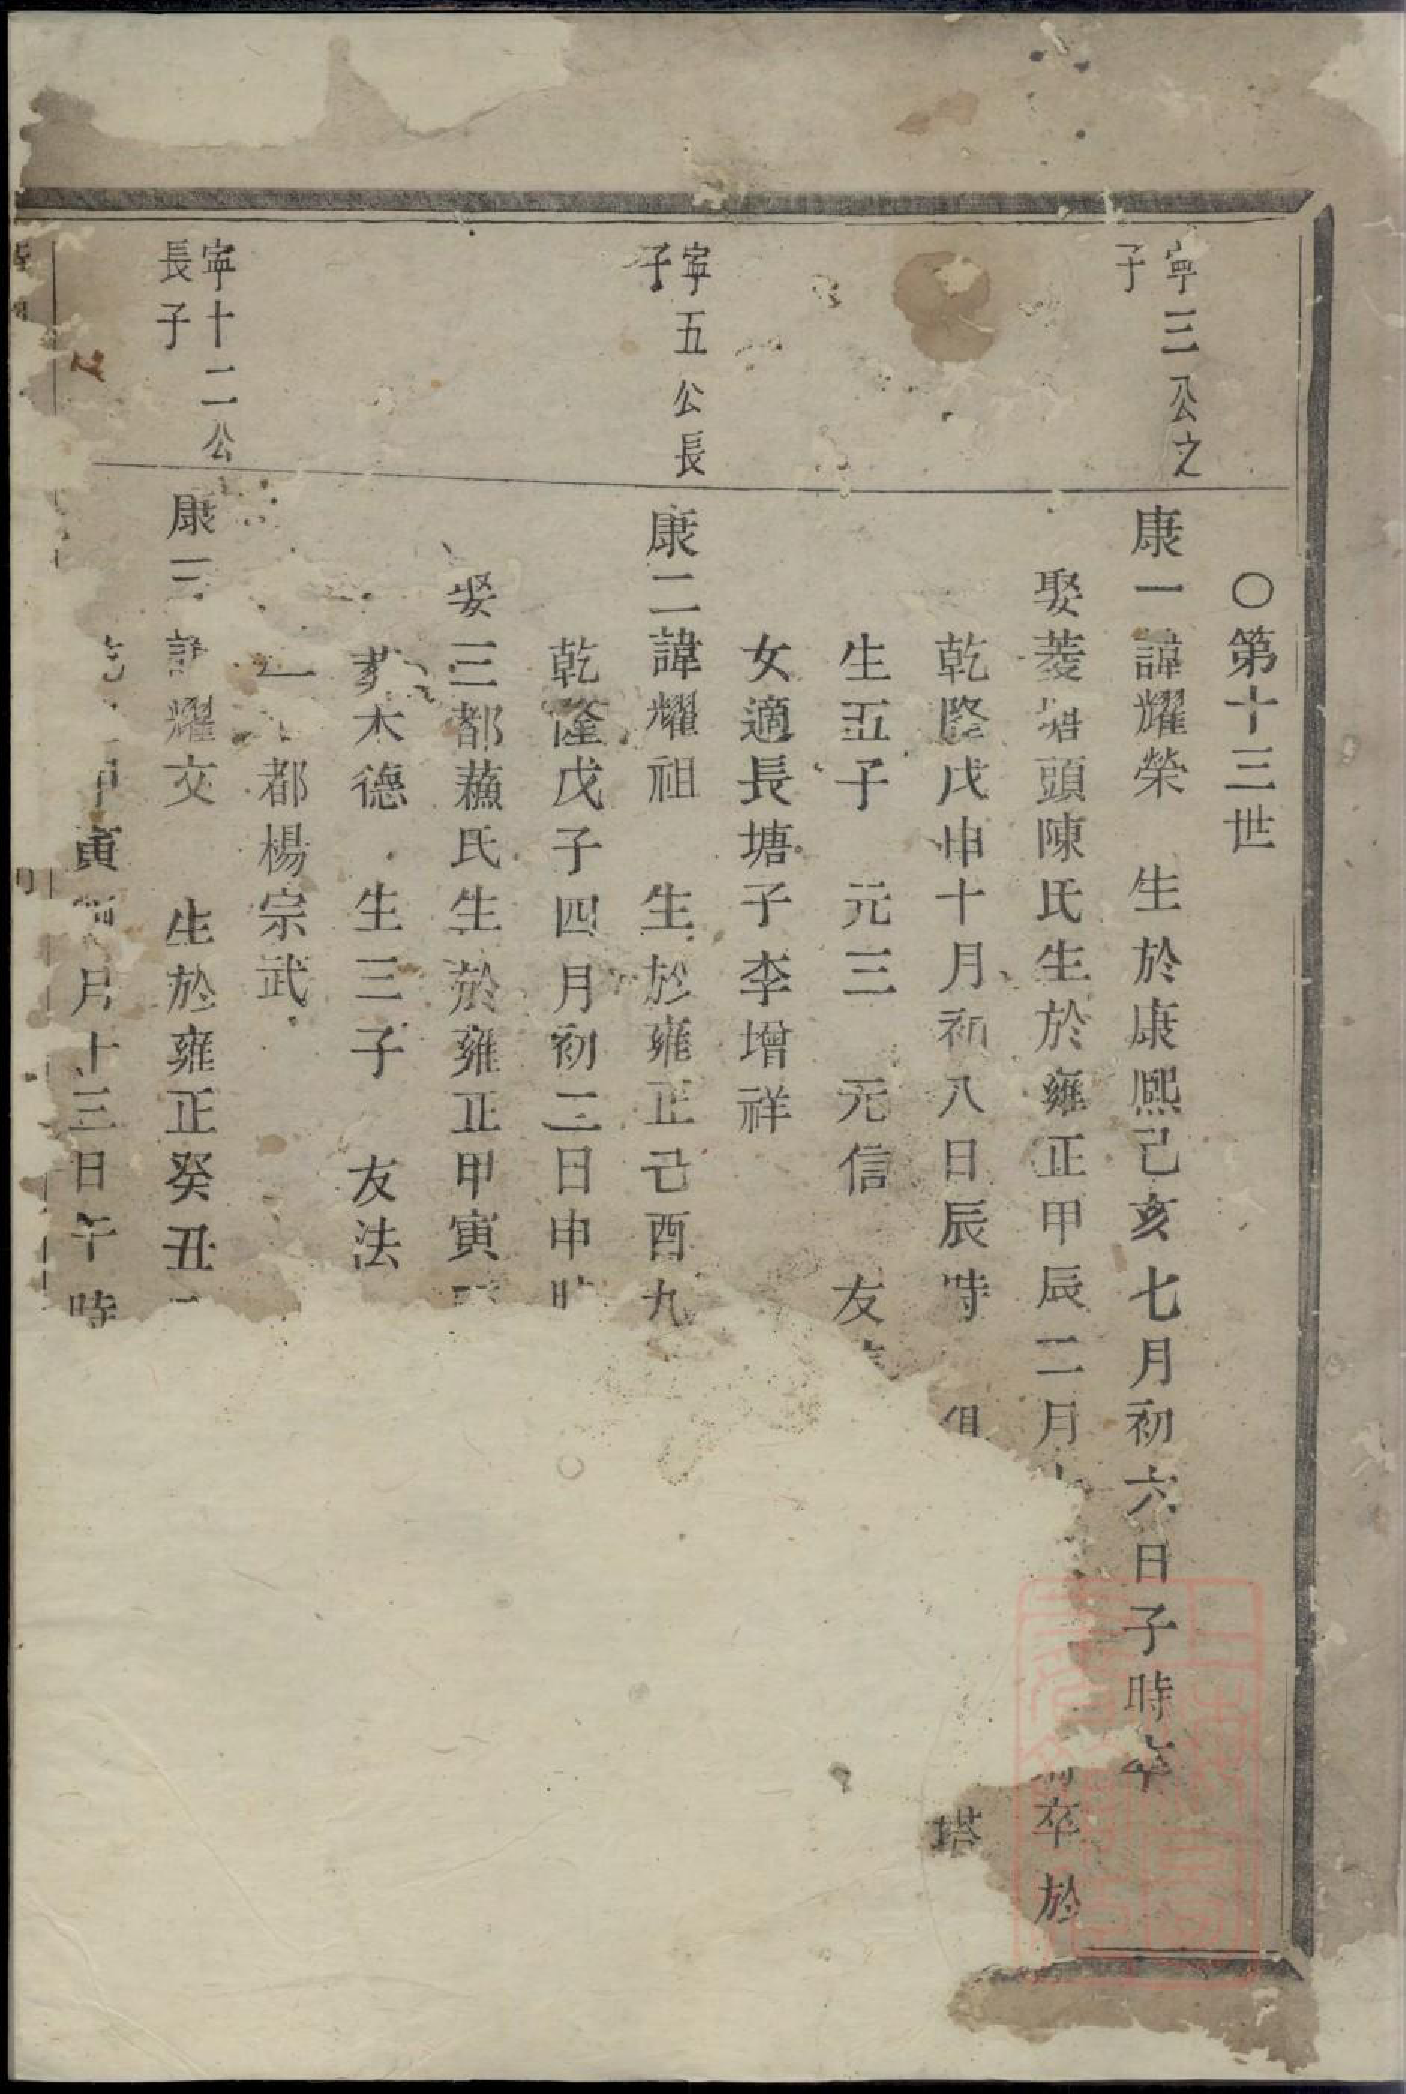 ○第十三世
寧三公之
子
康一諱耀榮　生於康熙己亥七月初六日子時卒
娶菱塘頭陳氏生於雍正甲辰二月卒於
乾隆戊申十月初八日辰時俱塔
生五子　元三　元信　友
女適長塘子李增祥
寧五公長
子
康二諱耀祖　生於雍正己酉九
乾隆戊子四月初二日申時
娶三都蘓氏生於雍正甲寅
木德　生三子　友法
都楊宗武
寧十二公
長子
康三諱耀文　生於雍正癸丑
寅月十三日午時